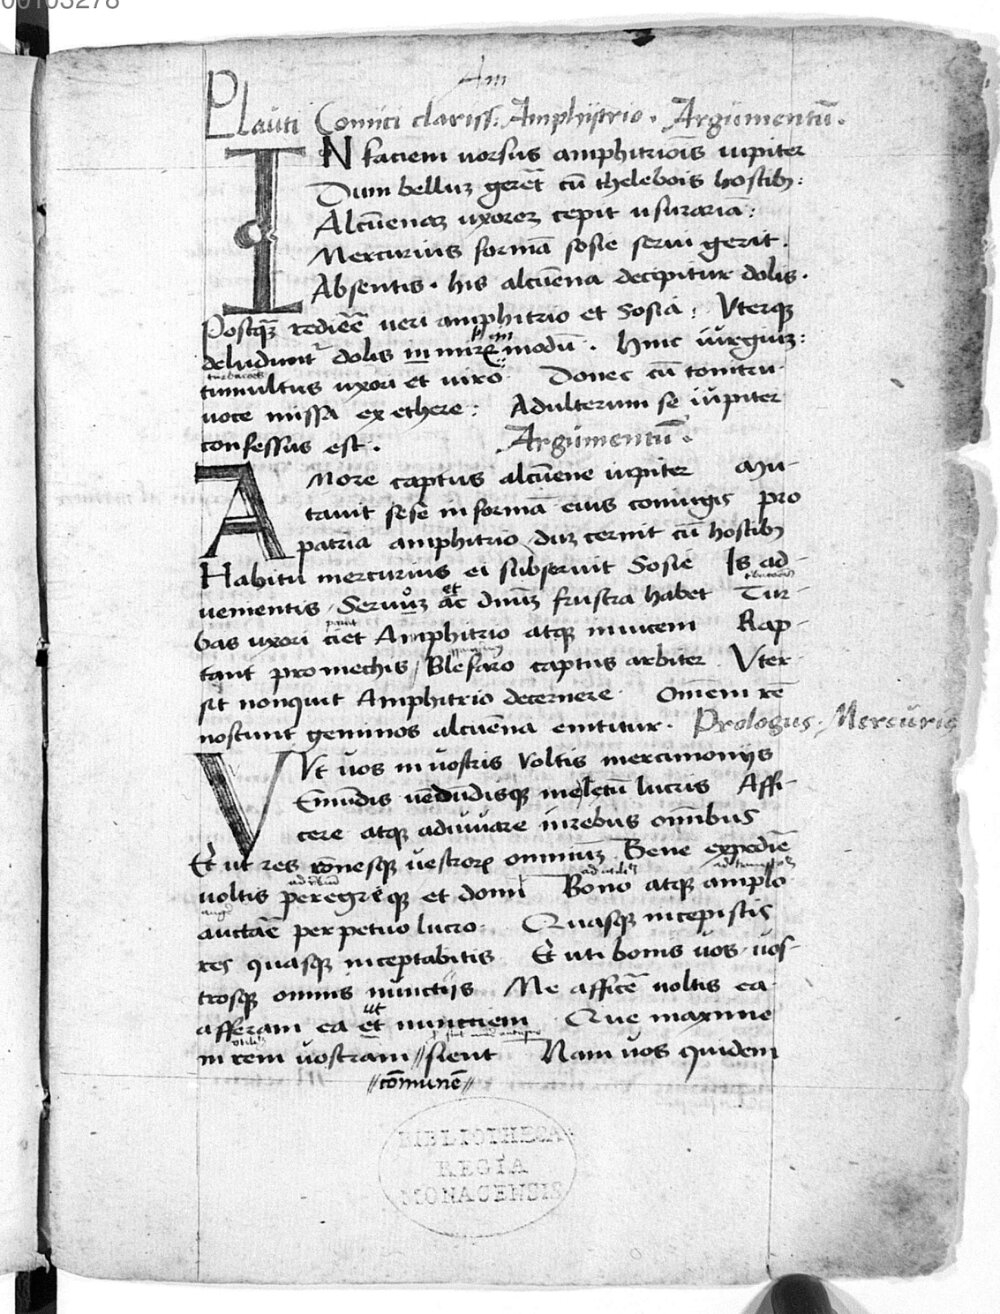 00103278
Am
Plauti Comici clariss: Amphitrio. Argumentū.
IN faciem uorsus amphitriois iupiter
Dum belluʒ gerēt cū thelebois hostibꝫ:
Alcūenaʒ uxoreʒ cepit usurariā:
Mercurius formā sosie serui gerit.
Absentis. his alcūena decipitur dolis.
Postqʒ̄ rediēē ueri amphitrio et Sosia: Vterqʒ
deludunt͛ dolis in mirū modū. Hinc iūrgiuʒ:
tumultus uxori et uirō. Donec cū tonitru
uoce missa ex ethere: Adulterum se iūpiter
confessus est. Argūmentū.
AMore captus alcūene iupiter Mu-
tauit sese in formā eius coniugis pro
patria amphitrio duʒ cernit cū hostibꝫ
Habitu mercurius ei subseruit Sosie Is ad-
uementis Seruūʒ āc dnūʒ frustra habet Tur-
bas uxori ciet Amphitrio atqʒ inuicem Rap-
tant pro mechis/ Blefaro captus arbiter Vter
sit nonquit Amphitrio decernere Omēm rē
noscunt geminos alcūena enititur. Prologus. Mercūriꝰ
VVt uos in uostris Voltis mercimonijs
Emūdis uēdūdisqʒ me letū lucris Affi-
cere atqʒ adiuuare inrebus omnibus
Et ut res rōnesqʒ uestrorꝝ omniuʒ Bene expediē
uoltis peregreqʒ et domi Bono atqʒ amplo
auctāē perpetuo lucro. Quasqʒ incepistis
res quasqʒ inceptabitis Et uti bonis uos uos-
trosqʒ omnis nunctijs Me afficē uoltis ea
afferam ea et ut nunctiem Que maxime
in rem uostram //sient Nam uos quidem
//cōmunē//
BIBLIOTHECA
REGIA
MONACENSIS